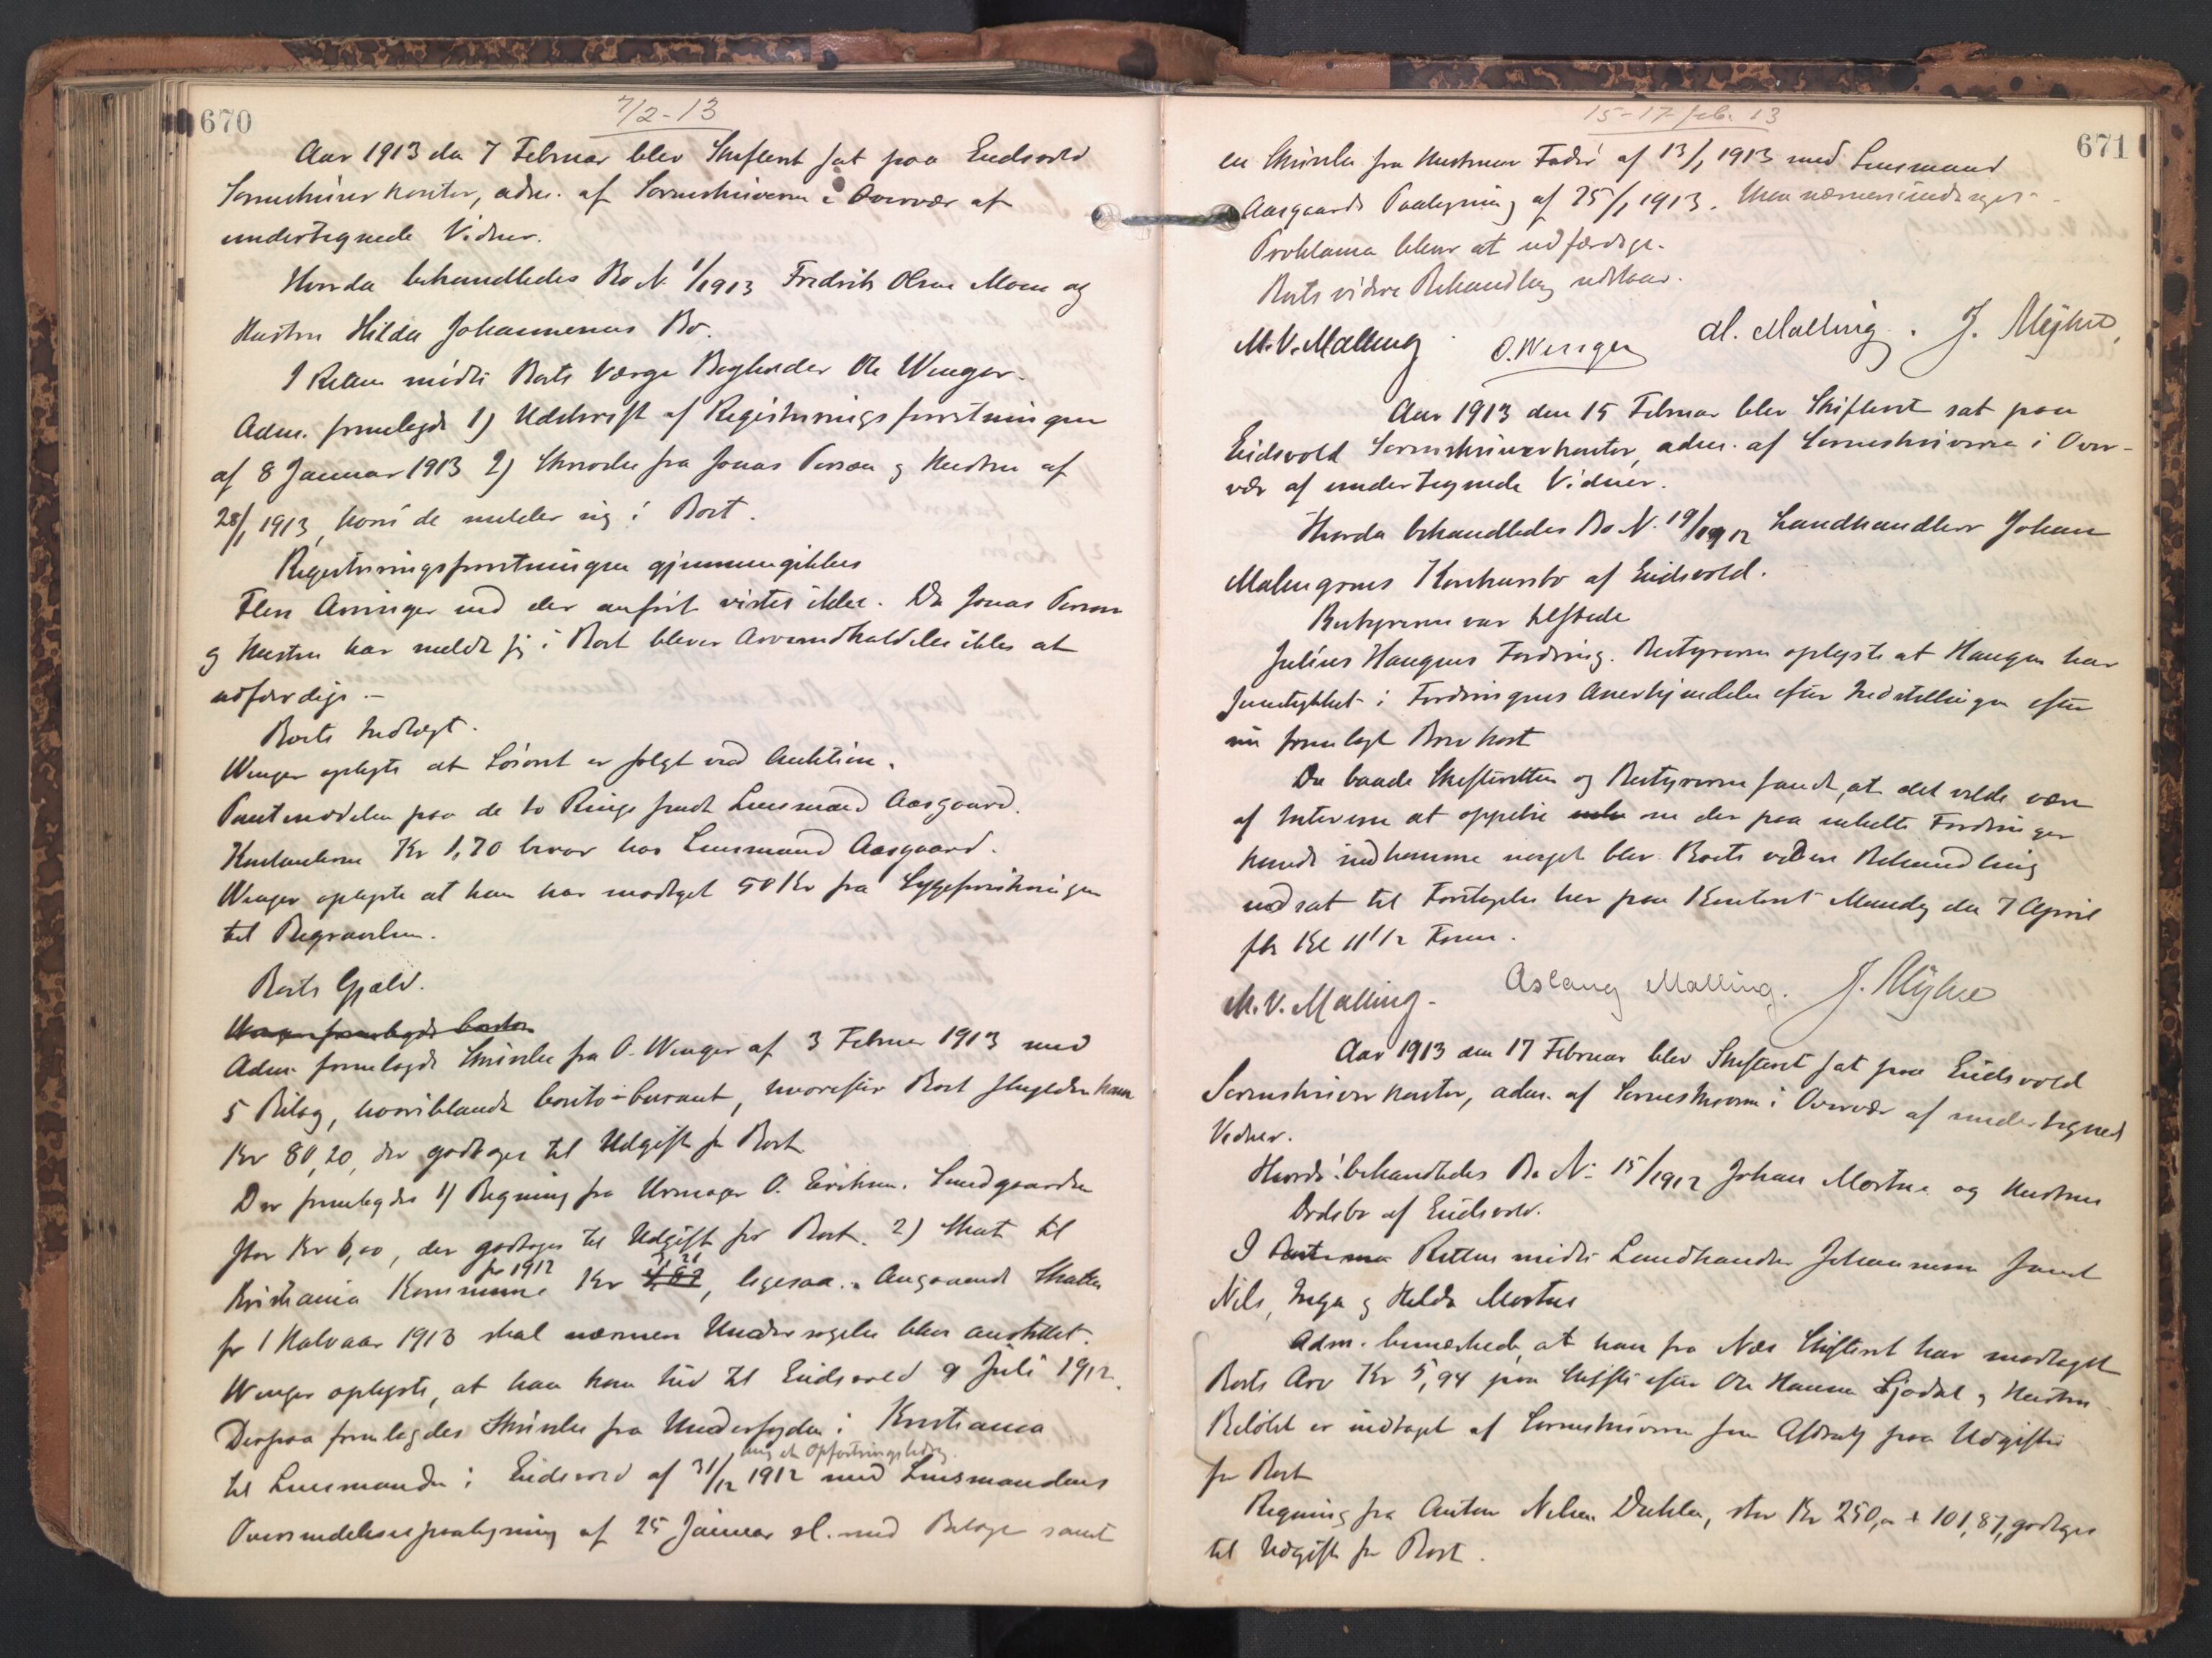 670
7/2-13
Aar 1913 den 7 Februar blev Skifteret sat paa Eidsvold
Sorenskriverkontor, adm. af Sorenskriveren i Overvær af
undertegnede Vidner.
Hvorda behandledes Bo N. 1/1913 Fredrik Olsen Moen og
Hustru Hilda Johannesens Bo.
I Retten mødte Boets Værge Bogholder Ole Wenger.
Adm. fremlagde 1) Udskrift af Registreringsforretningen
af 8 Januar 1913 2) Skrivelse fra Jonas Person og Hustru af
28/1 1913, hvori de melder sig i Boet.
Registreringsforretningen gjennemgikkes
Flere Arvinger end der anført vistes ikke. Da Jonas Person
og Hustru har meldt sig i Boet bliver Arveindkaldelse ikke at
udfærdige.-
Boets Indtægt.
Wenger oplyste at Løsøret er solgt ved Auktion.
Pantseddelen paa de to Ringe sendt Lensmand Aasgaard.
Kontanterne Kr 1,70 beror hos Lensmand Aasgaard.
Wenger oplyste at han har modtaget 50 Kr fra Sygeforsikringen
til Begravelsen.
Boets Gjæld.
Wenger fremlagde Conto
Adm. fremlagde Skrivelse fra O. Wenger af 3 Februar 1913 med
5 Bilag, hvoriblandt Conto-Courant, hvorefter Boet skylder ham
Kr 80,20, der godtages til Udgift for Boet
Der fremlagdes 1) Regning fra Urmager O. Eriksen, Sundgaarden
stor Kr 6,00, der godtages til Udgift for Boet. 2) Skat til
for 1912 3,21
Kristiania Kommune Kr, ligesaa. Angaaende Skatten
for 1 Halvaar 1913 skal nærmere Undersøgelse blive anstillet.
Wenger oplyste, at han kom hid til Eidsvold 9 Juli 1912.
Derpaa fremlagdes Skrivelse fra Underfogden i Kristiania
ang et Opfostringsbidrag
til Lensmanden i Eidsvold af 31/12 1912 med Lensmandens
Oversendelsespaategning af 25 Januar sl. med Bilage samt
15-17 feb. 13
671
en Skrivelse fra af 13/1 1913 med Lensmand
Aasgaards Paategning af 25/1 1913.
Proklama bliver at udfærdige.
Boets videre Behandling udstaar.
M.V. Malling. O. Wenger M. Malling. J. Myhre,
Aar 1913 den 15 Februar blev Skifteret sat paa
Eidsvold Sorenskriverkontor, adm. af Sorenskriveren i Over-
vær af undertegnede Vidner.
Hvorda behandledes Bo N. 19/1912 Landhandler Johan
Malengrens Konkursbo af Eidsvold.
Bestyreren var tilstede
Julius Haugens Fordring. Bestyreren oplyste at Haugen har
samtykket i Fordringens Anerkjendelse efter Indstillingen efter
nu fremlagt Brevkort
Da baade Skifteretten og Bestyreren fandt, at det vilde være
af Interesse at oppebie om der paa enkelte Fordringer
kunde indkomme noget blev Boets videre Behandling
udsat til Foretagelse her paa Kontoret Mandag den 7 April
fk Kl 11 1/2 Form.
M.V. Malling. Aslaug Malling. J. Myhre
Aar 1913 den 17 Februar blev Skifteret sat paa Eidsvold
Sorenskriverkontor, adm. af Sorenskriveren i Overvær af undertegned
Vidner.
Hvorda behandledes Bo N. 15/1912 Johan Mostue og Hustrus
Dødsbo af Eidsvold.
I Retten mødte Landhandler Johannesen samt
Nils, Inga og Helda Mostue
Adm. bemærkede, at han fra Næs Skifteret har modtaget
Boets Arv Kr 5,94 paa Skiftet efter Ole Hansen og Hustru
Beløbet er indtaget af Sorenskriveren som Afdrag paa Udgifter
for Boet
Regning fra Anton Nilsen Dahlen, stor Kr 250,00 + 101,87, godtages
til Udgift for Boet.